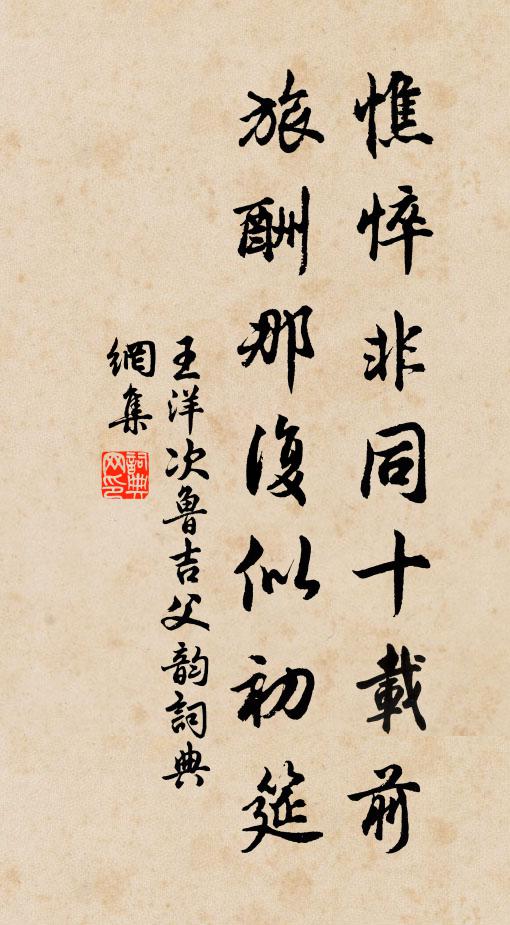 憔悴非同十載前
旅酬那復似初筵
王洋次魯吉父韵詞典
網集
詞典網印